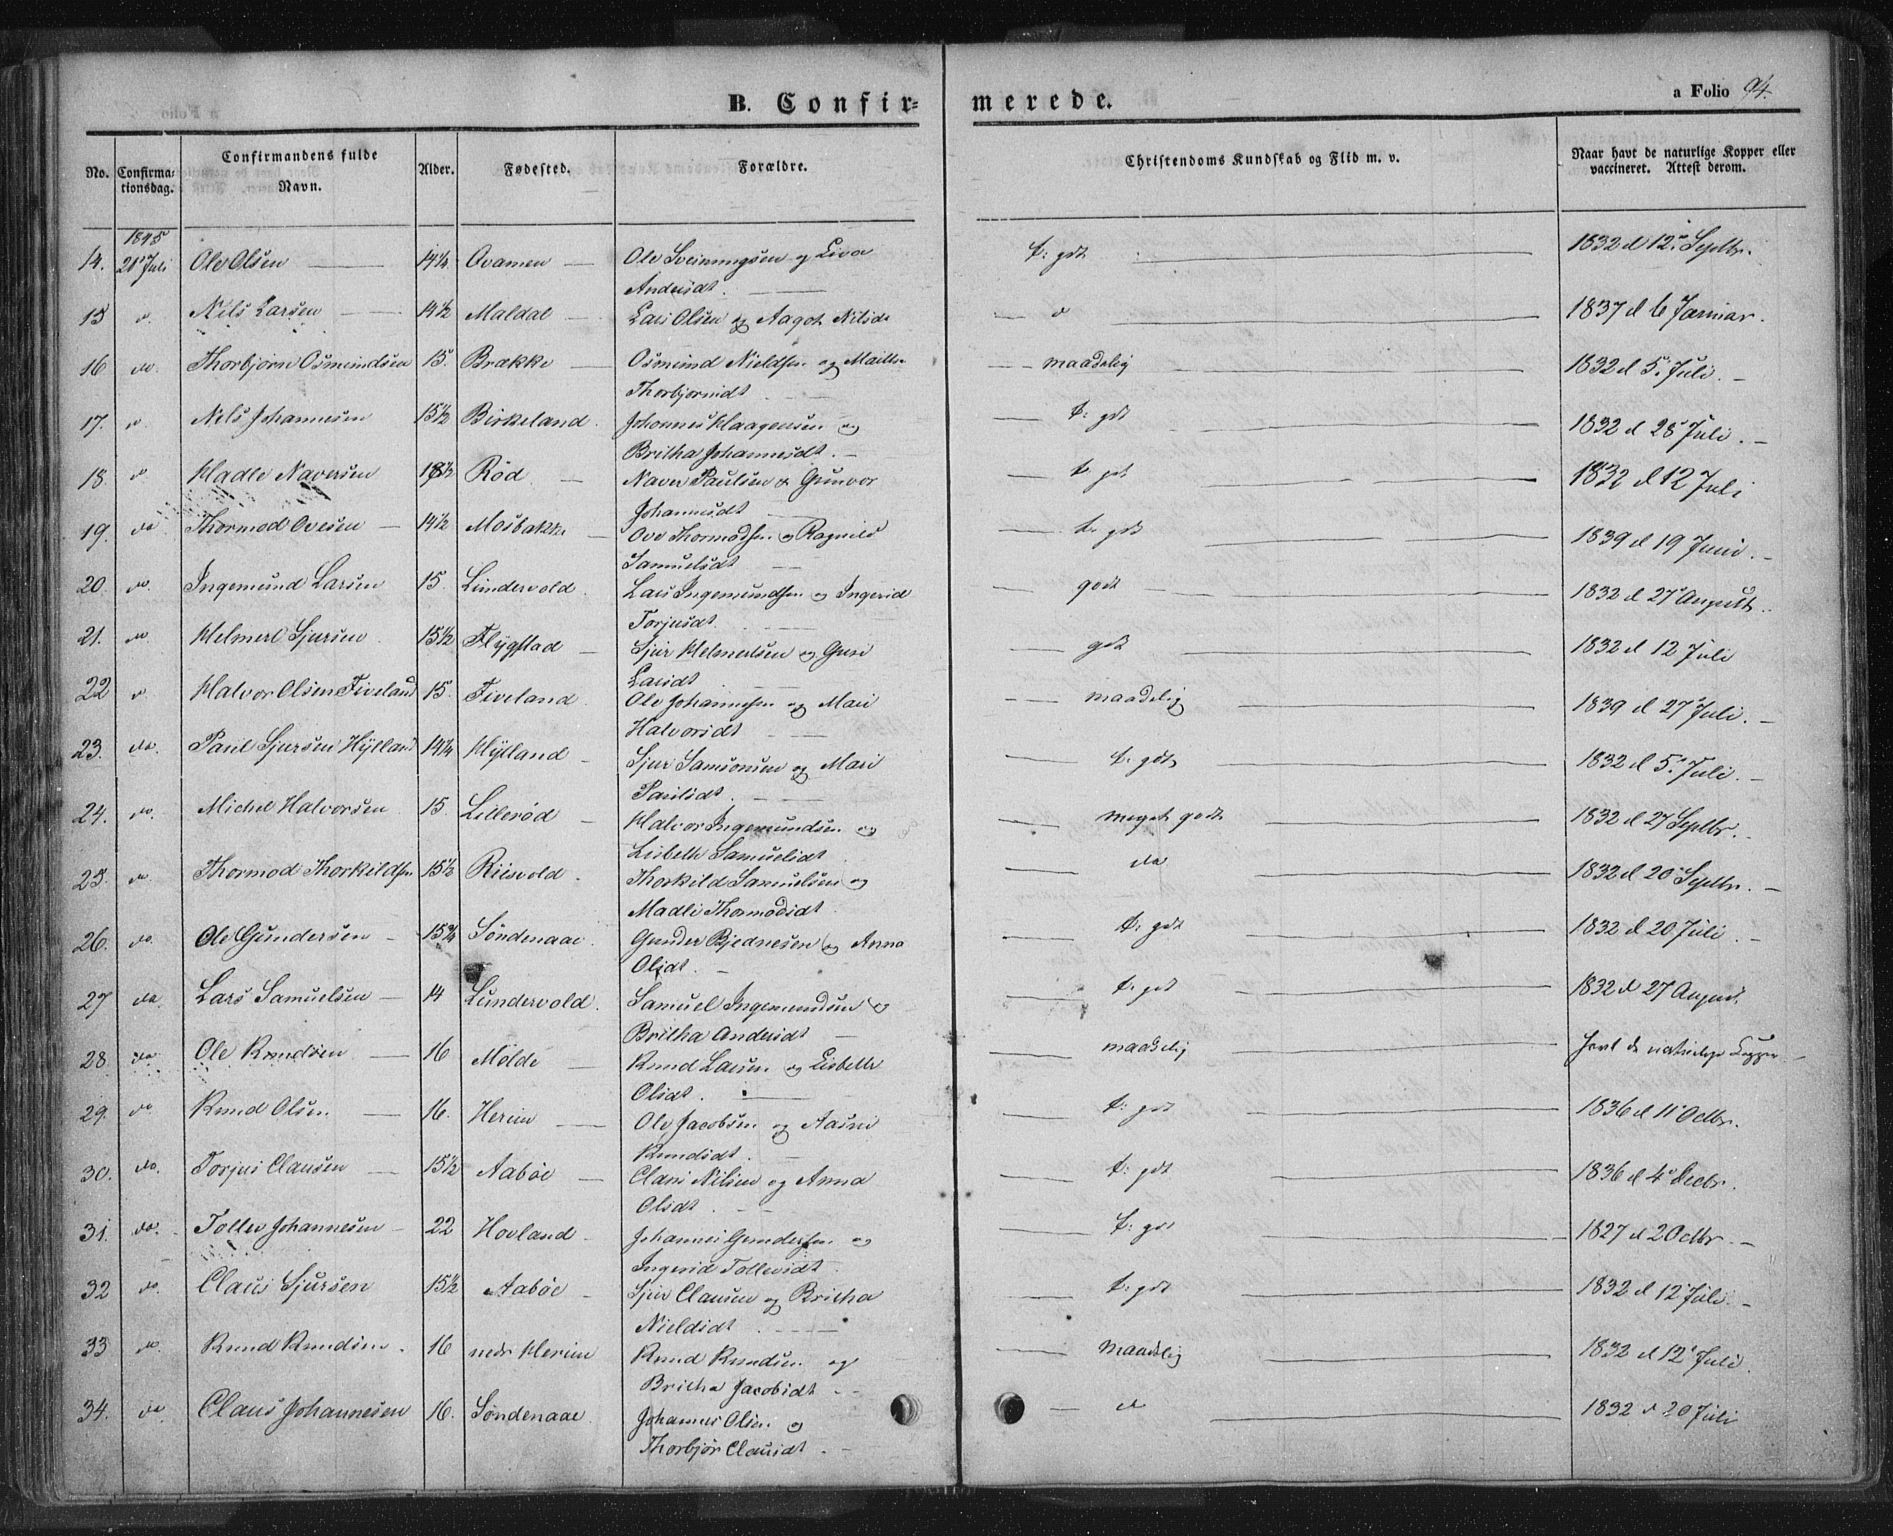 B. Confir= merede. a Folio 94.
No. Confirma=tionsdag. Confirmandens fulde Navn. Alder. Fødested. Forældre. Christendoms Kundskab og Flid m. v. Naar havt de naturlige Kopper eller vaccineret. Attest derom.
1845
14. 20 Juli Ole Olsen 14¼ Ovamen Ole Sveinungsen og Liva t: gdt 1832 d 12 Septbr.
Andersdt.
15 do. Nils Larsen 14½ Maldal Lars Olsen og Aagot Nilsdt do 1837 d 6 Januar.
16 do. Thorbjørn Osmundsen 15. Brække Osmund Nieldsen og Malli maadelig 1832 d 5 Juli.
Thorbjørnsdt
17. do Nils Johannesen 15½ Birkeland. Johannes Haagensen og t: gdt 1832 d 28 Juli.
Britha Johannesdt.
18. do Hadle Naversen 18½ Rød Naver Paulsen & Gunvor t. gdt 1832 d 12 Juli
Johannesdt
19. do Thormod Ovesen 14½ Mosbakke Ove Thormodsen og Ragnild t. gdt 1839 d 19 Juni.
Samuelsdt
20. do. Ingemund Larsen 15. Lundervold. Lars Ingemundsen og Ingerid godt 1832 d 27 August.
Torjusdt.
21. do Helmert Sjursen 15½ Flygstad Sjur Helmertsen og Guri gdt 1832 d 12 Juli
Larsdt
22 do Halvor Olsen Fiveland 15. Fiveland. Ole Johannesen og Mari maadelig 1839 d 27 Juli.
Halvorsdt
23. do. Paul Sjursen Hylland 14¼ Hylland Sjur Samsonsen og Mari t. gdt 1832 d 5. Juli.
Paulsdt.
24. do. Michel Halvorsen 15 Lillerød Halvor Ingemundsen og meget godt 1832 d 27 Septbr.
Lisbeth Samuelsdt
25. do. Thormod Thorkildsen 15½ Riisvold. Thorkild Samuelsen og do 1832 d 20 Septbr.
Madli Thormodsdt.
26. do. Ole Gundersen 15¾ Søndenaae. Gunder Bjednesen og Anna t: gdt 1832 d 20 Juli.
Olsdt.
27 do Lars Samuelsen 14 Lundervold. Samuel Ingemundsen og t. gdt 1832 d 27 August.
Britha Andersdt
28 do Ole Knudsen 16 Molde Knud Larsen og Lisbeth maadelig havt de naturlige Kopper
Olsdt.
29. do Knud Olsen 16. Herim Ole Jacobsen og Aasne t: gdt 1836 d 11 Octbr.
Knudsdt.
30. do. Torjus Clausen 15½ Aabøe Claus Nilsen og Anna t: gdt 1836 d 4 Decbr.
Olsdt.
31. do. Tollev Johannesen 22 Hovland Johannes Gundersen og t: gdt 1827 d 2 Octbr.
Ingerid Tollevsdt
32 do. Claus Sjursen 15½ Aabøe Sjur Clausen og Britha t: gdt 1832 d 12 Juli.
Nieldsdt.
33 do. Knud Knudsen. 16 nedr Herim Knud Knudsen og maadelig 1832 d 12 Juli.
Britha Jacobsdt
34. do Claus Johannesen 16. Søndenaae. Johannes Olsen og do 1832 d 20 Juli
Thorbjør Clausdt.